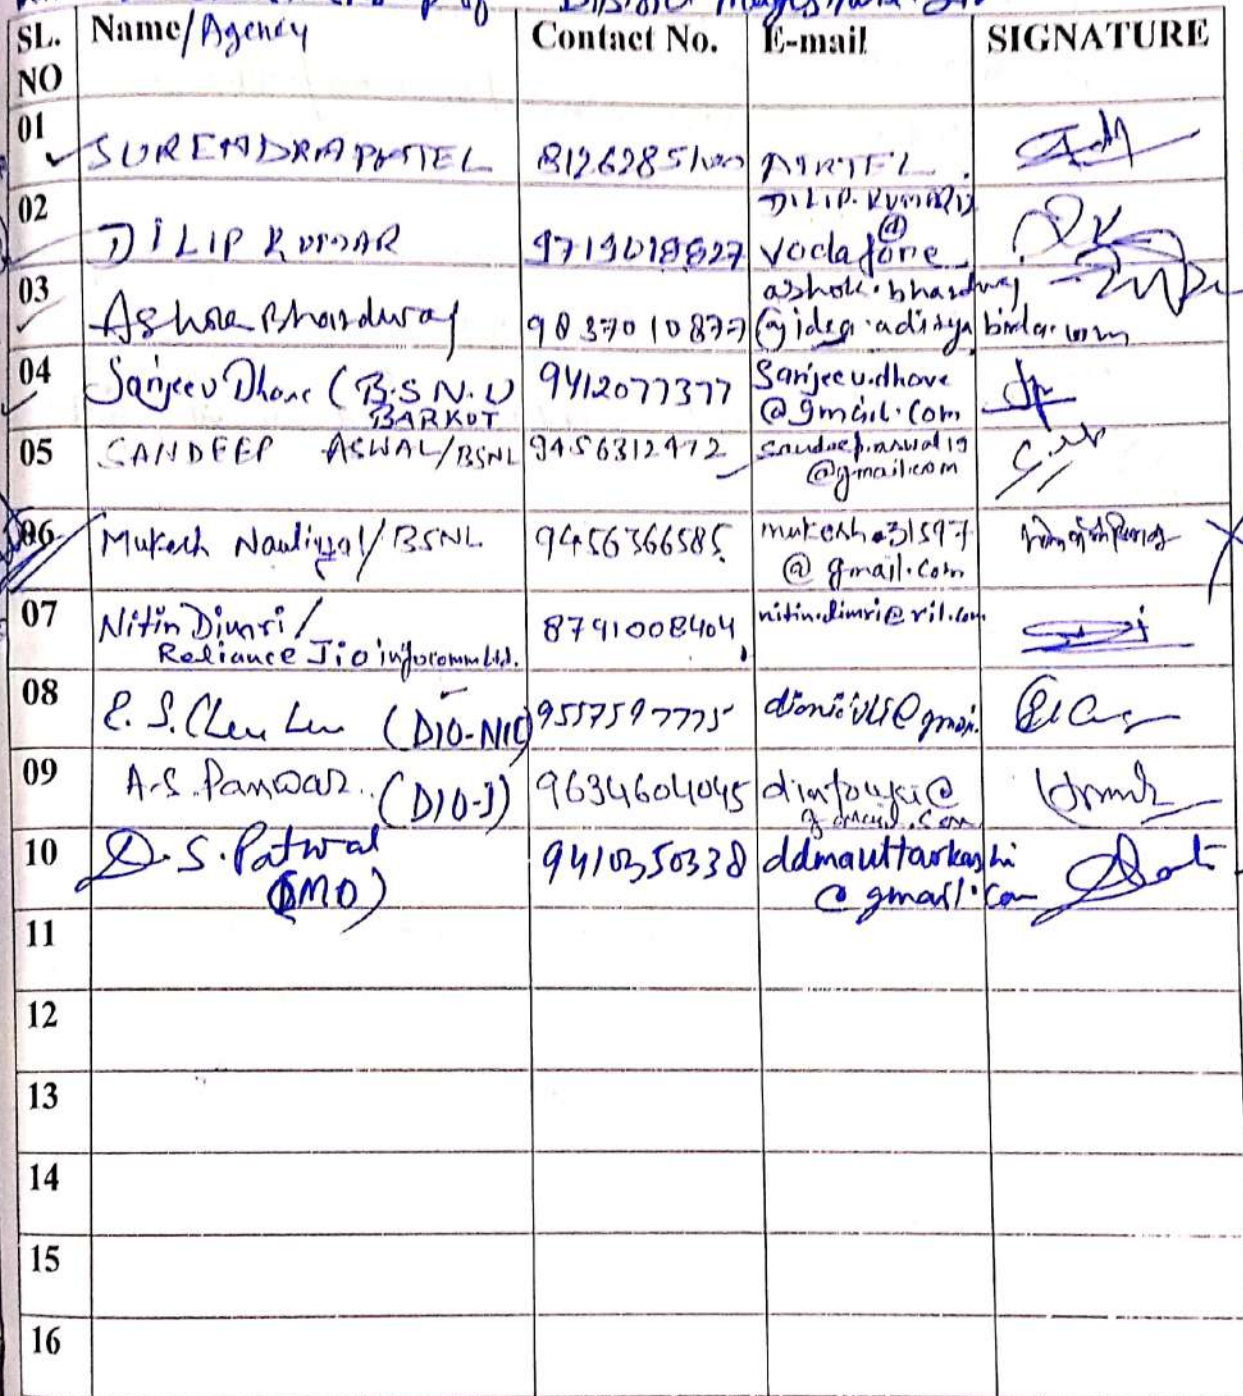 District Magistrate
SL. NO Name/Agency Contact No. E-mail SIGNATURE
01 SURENDRA PATEL AIRTEL
02 DILIP KUMAR 9719018827 DILIP.KUMAR
@
vodafone
03 Ashok Bhardwaj 9837010877 ashok.bhardwaj
@idea.adityabirla.com
04 Sanjeev Dhove (B.S.N.L 9412077377 Sanjeev.dhove
BARKOT @gmail.com
05 SANDEEP ASWAL/BSNL 9456312472 sandeep.aswal19
@gmail.com
06 Mukesh Nautiyal/BSNL 9456366585 mukesh.31597
@gmail.com
07 Nitin Dimri/ 8791008404 nitin.dimri@ril.com
Reliance Jio infocomm Ltd.
08 (DIO-NIC) 9557597775
09 A.S. Panwar. (DIO-J) 9634604045
10 D.S. Patwal 9410350338 ddmauttarkashi
(DMO) @gmail.com
11
12
13
14
15
16